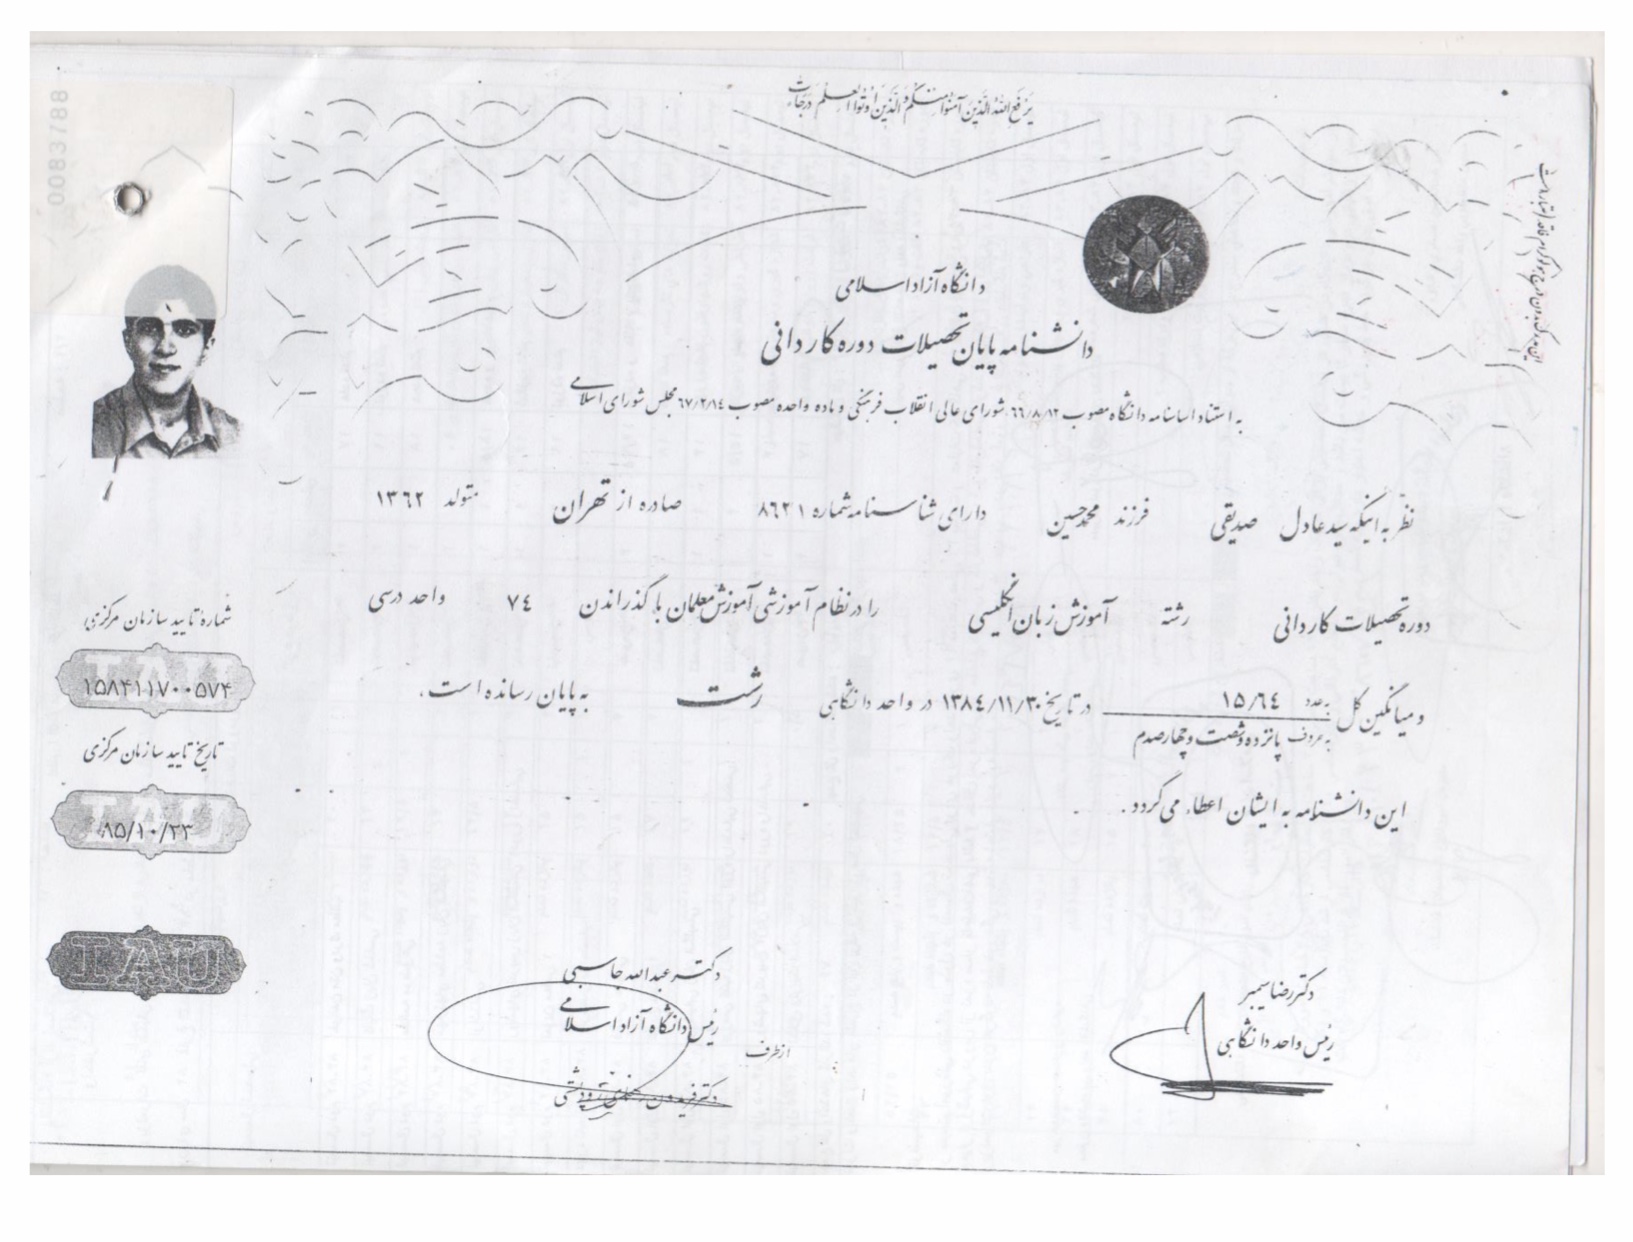 يرفع الله الذين آمنوا منكم و الذين اوتوا العلم درجات
دانشگاه آزاد اسلامی
دانشنامه پایان تحصیلات دوره کاردانی
به استناد اساسنامه دانشگاه مصوب ٦٦/٨/١٢ شورای عالی انقلاب فرهنگی و ماده واحده مصوب ٦٧/٢/١٤ مجلس شورای اسلامی
نظر به اینکه سید عادل صدیقی فرزند محمدحسین دارای شناسنامه شماره ٨٦٢١ صادره از تهران متولد ١٣٦٢
دوره تحصیلات کاردانی رشته آموزش زبان انگلیسی را در نظام آموزشی آموزش معلمان با گذراندن ٧٤ واحد درسی
و میانگین کل به عدد ١٥/٦٤ در تاریخ ١٣٨٤/١١/٣٠ در واحد دانشگاهی رشت به پایان رسانده است.
به حروف پانزده و شصت و چهار صدم
این دانشنامه به ایشان اعطاء می گردد.
شماره تایید سازمان مرکزی
۱۵۸۴۱۱۷۰۰۵۷۴
تاریخ تایید سازمان مرکزی
۸۵/۱۰/۲۳
IAU
دکتر رضا سیمبر
رئیس واحد دانشگاهی
دکتر عبدالله جاسبی
رئیس دانشگاه آزاد اسلامی
از طرف
0083788